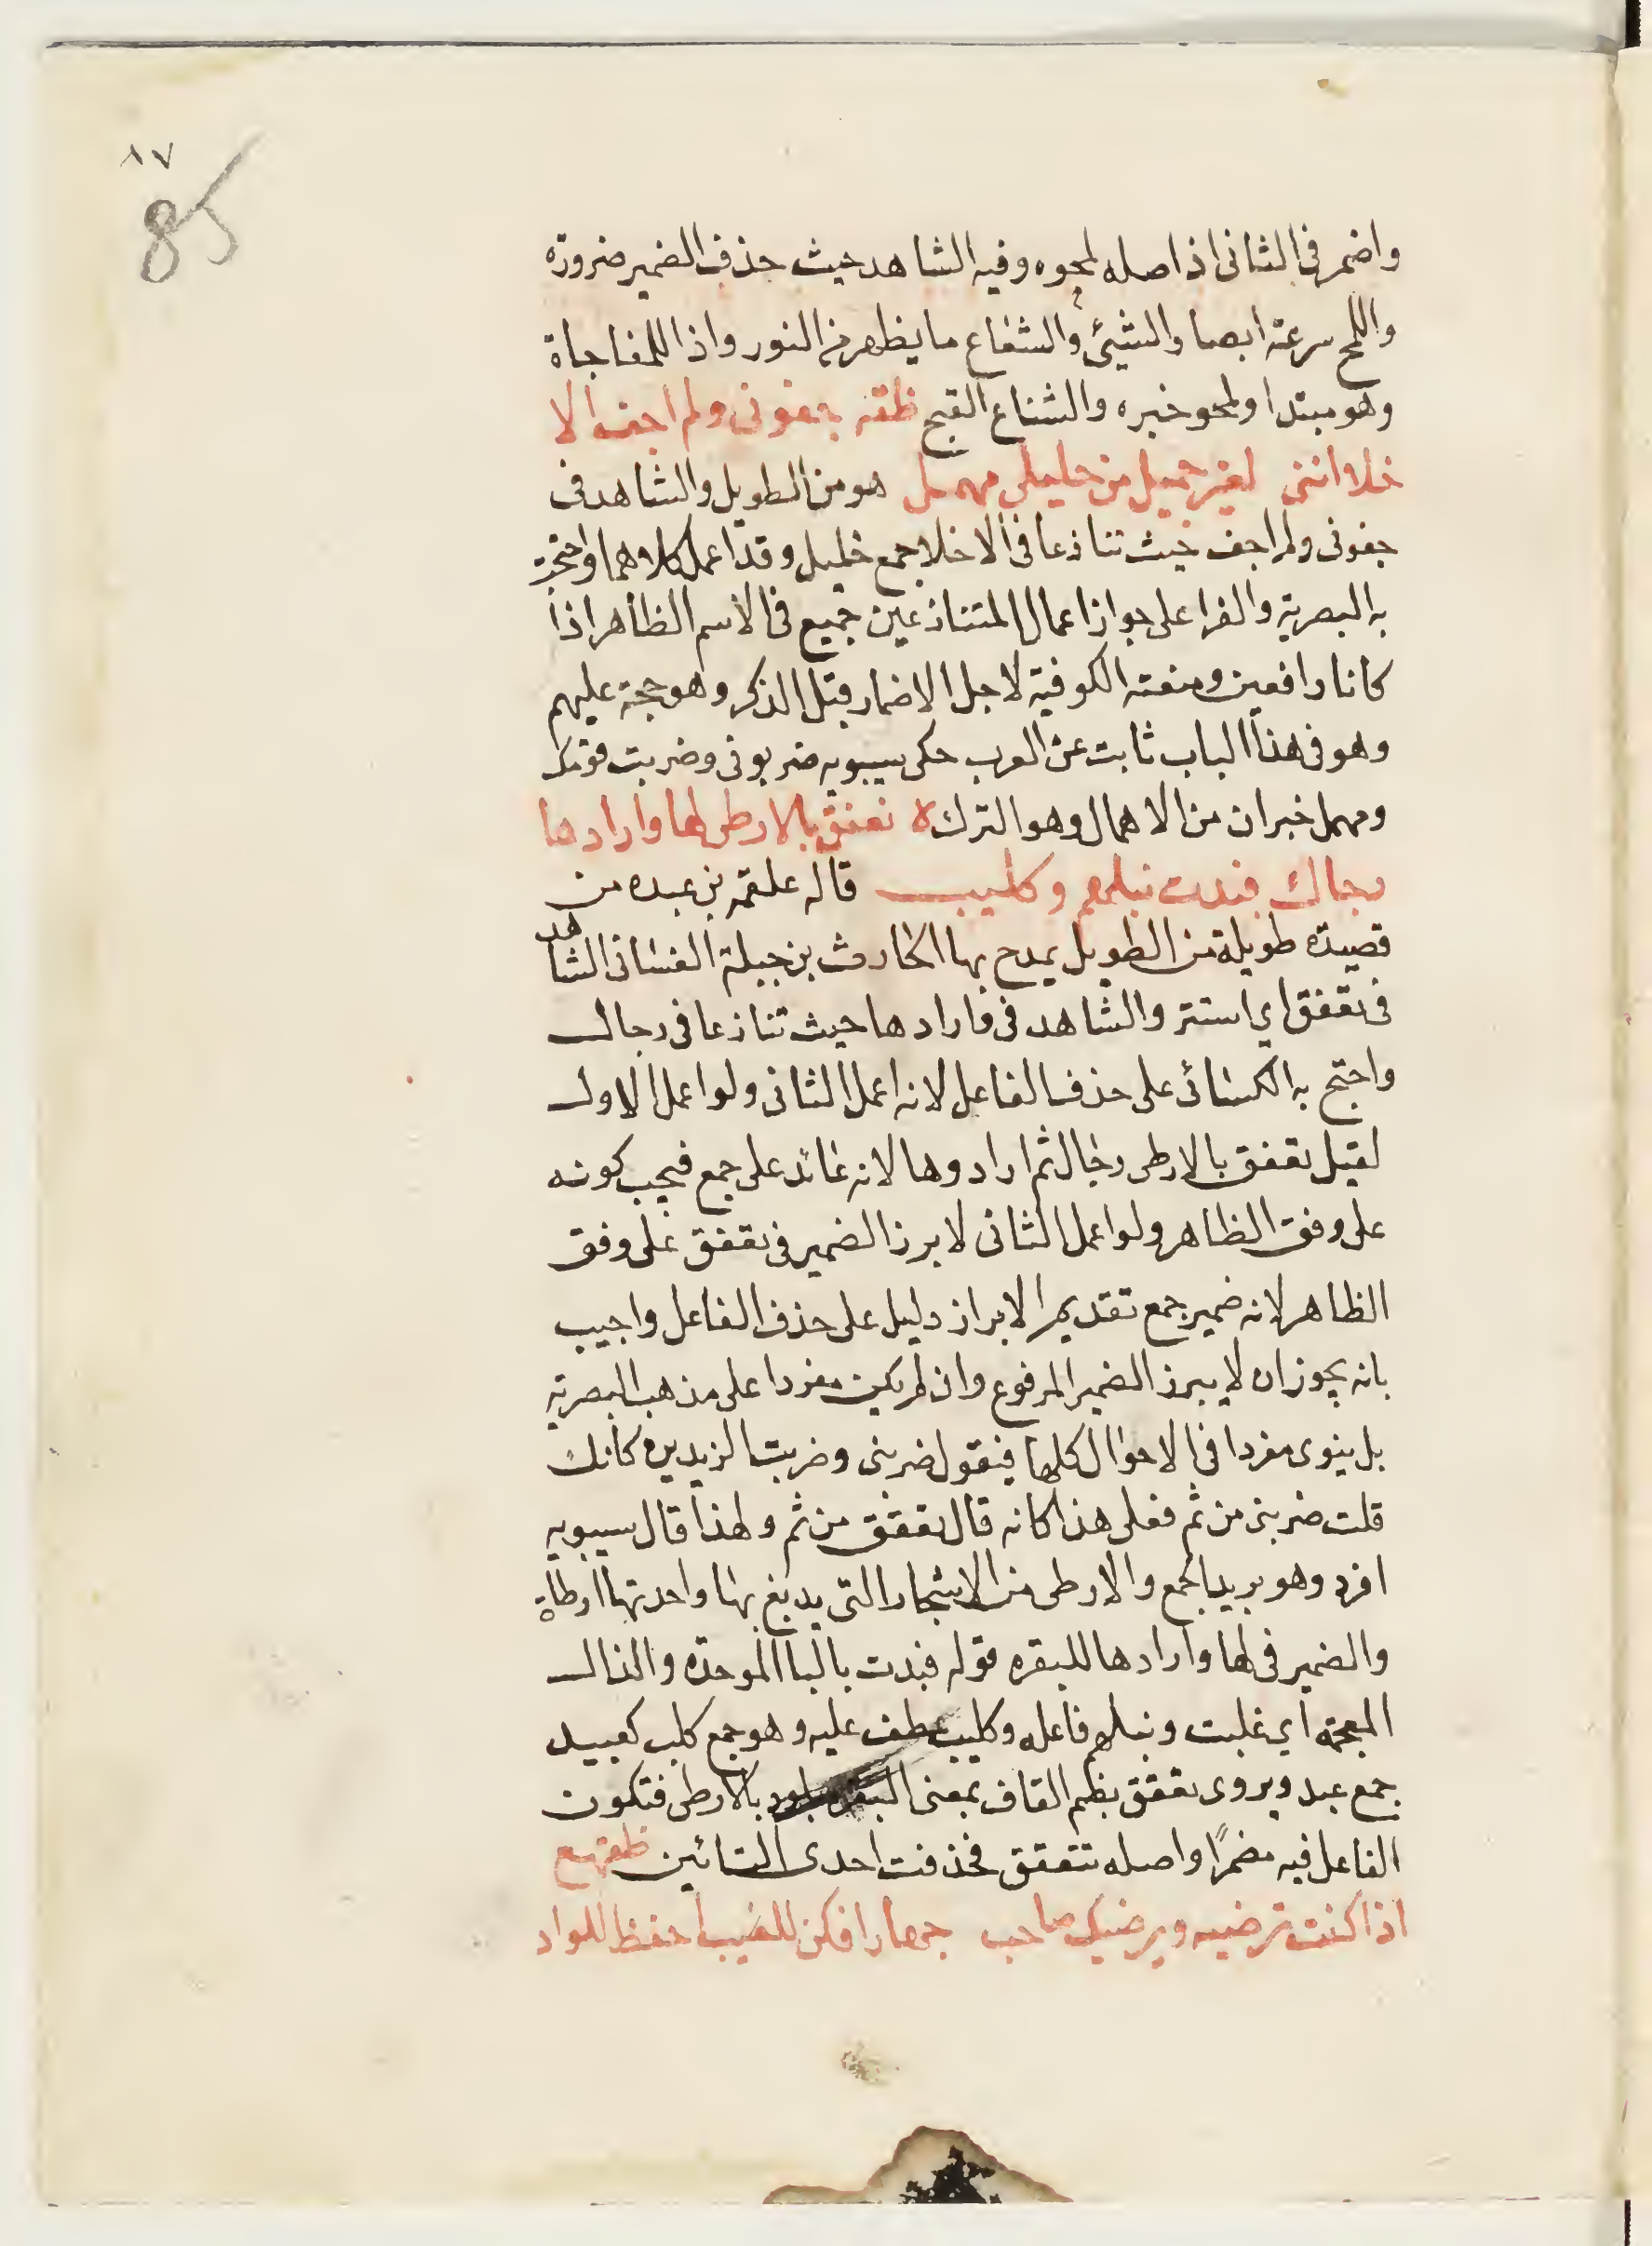 ٨٧
85
واضمر فى الثانى اذ اصله لمحوه وفيه الشاهد حيث حذف الضمير ضرورة
واللمح سرعة ابصار الشيئ والشعاع ما يظهر من النور واذا للمفاجاة
وهو مبتدا ولمحو خبره والشناع القبح ظقه جفونى ولم اجف الا
خلا اننى لغير جميل من خليلى مهمل هو من الطويل والشاهد فى
جفونى ولم اجف حيث تنازعا فى الاخلا جمع خليل وقد اعمل كلاهما واحتجت
به البصرية والفرا على جواز اعمال المتنازعين جميع فى الاسم الظاهر اذا
كانا رافعين ومنعته الكوفية لاجل الاضمار قبل الذكر وهو حجة عليهم
وهو فى هذا الباب ثابت عن العرب حكى سيبويه ضربونى وضربت قومك
ومهمل خبر ان من الاهمال وهو الترك ه تعفق بالارطى لها وارادها
رجال فبذت نبلهم وكليب قاله علقمة بن عبده من
قصيدة طويلة من الطويل يمدح بها الحارث بن جبلة الغسانى الشاهد
فى تعفق اي استتر والشاهد فى وارادها حيث تنازعا فى رجال
واحتج به الكسائى على حذف الفاعل لانه اعمل الثانى ولو اعمل الاول
لقيل تعفق بالارطى رجال ثم ارادوها لانه عائد على جمع فيجب كونه
على وفق الظاهر ولو اعمل الثانى لابرز الضمير فى تعفق على وفق
الظاهر لانه ضمير جمع تقديم الابراز دليل على حذف الفاعل واجيب
بانه يجوز ان لا يبرز الضمير المرفوع وان لم يكن مفردا على مذهب البصرية
بل ينوى مفردا فى الاحوال كلها فيقول ضربنى وضربت الزيدين كانك
قلت ضربنى من ثم فعلى هذا كانه قال تعفق من ثم ولهذا قال سيبويه
افرد وهو يريد الجمع والارطى من الاشجار التى يدبغ بها واحدتها ارطاة
والضمير فى لها وارادها للبقره قوله فبذت بالبا الموحدة والذال
المعجمة اي غلبت ونبلهم فاعله وكليب عطف عليه وهو جمع كلب كعبيد
جمع عبد ويروى تعفق بظم القاف بمعنى البقره تلوذ بالارطى فتكون
الفاعل فيه مضمرًا واصله تتعفق فحذفت احدى التائين ظقهع
اذا كنت ترضيه ويرضيك صاحب جهارا فكن للغيب احفظ للواد